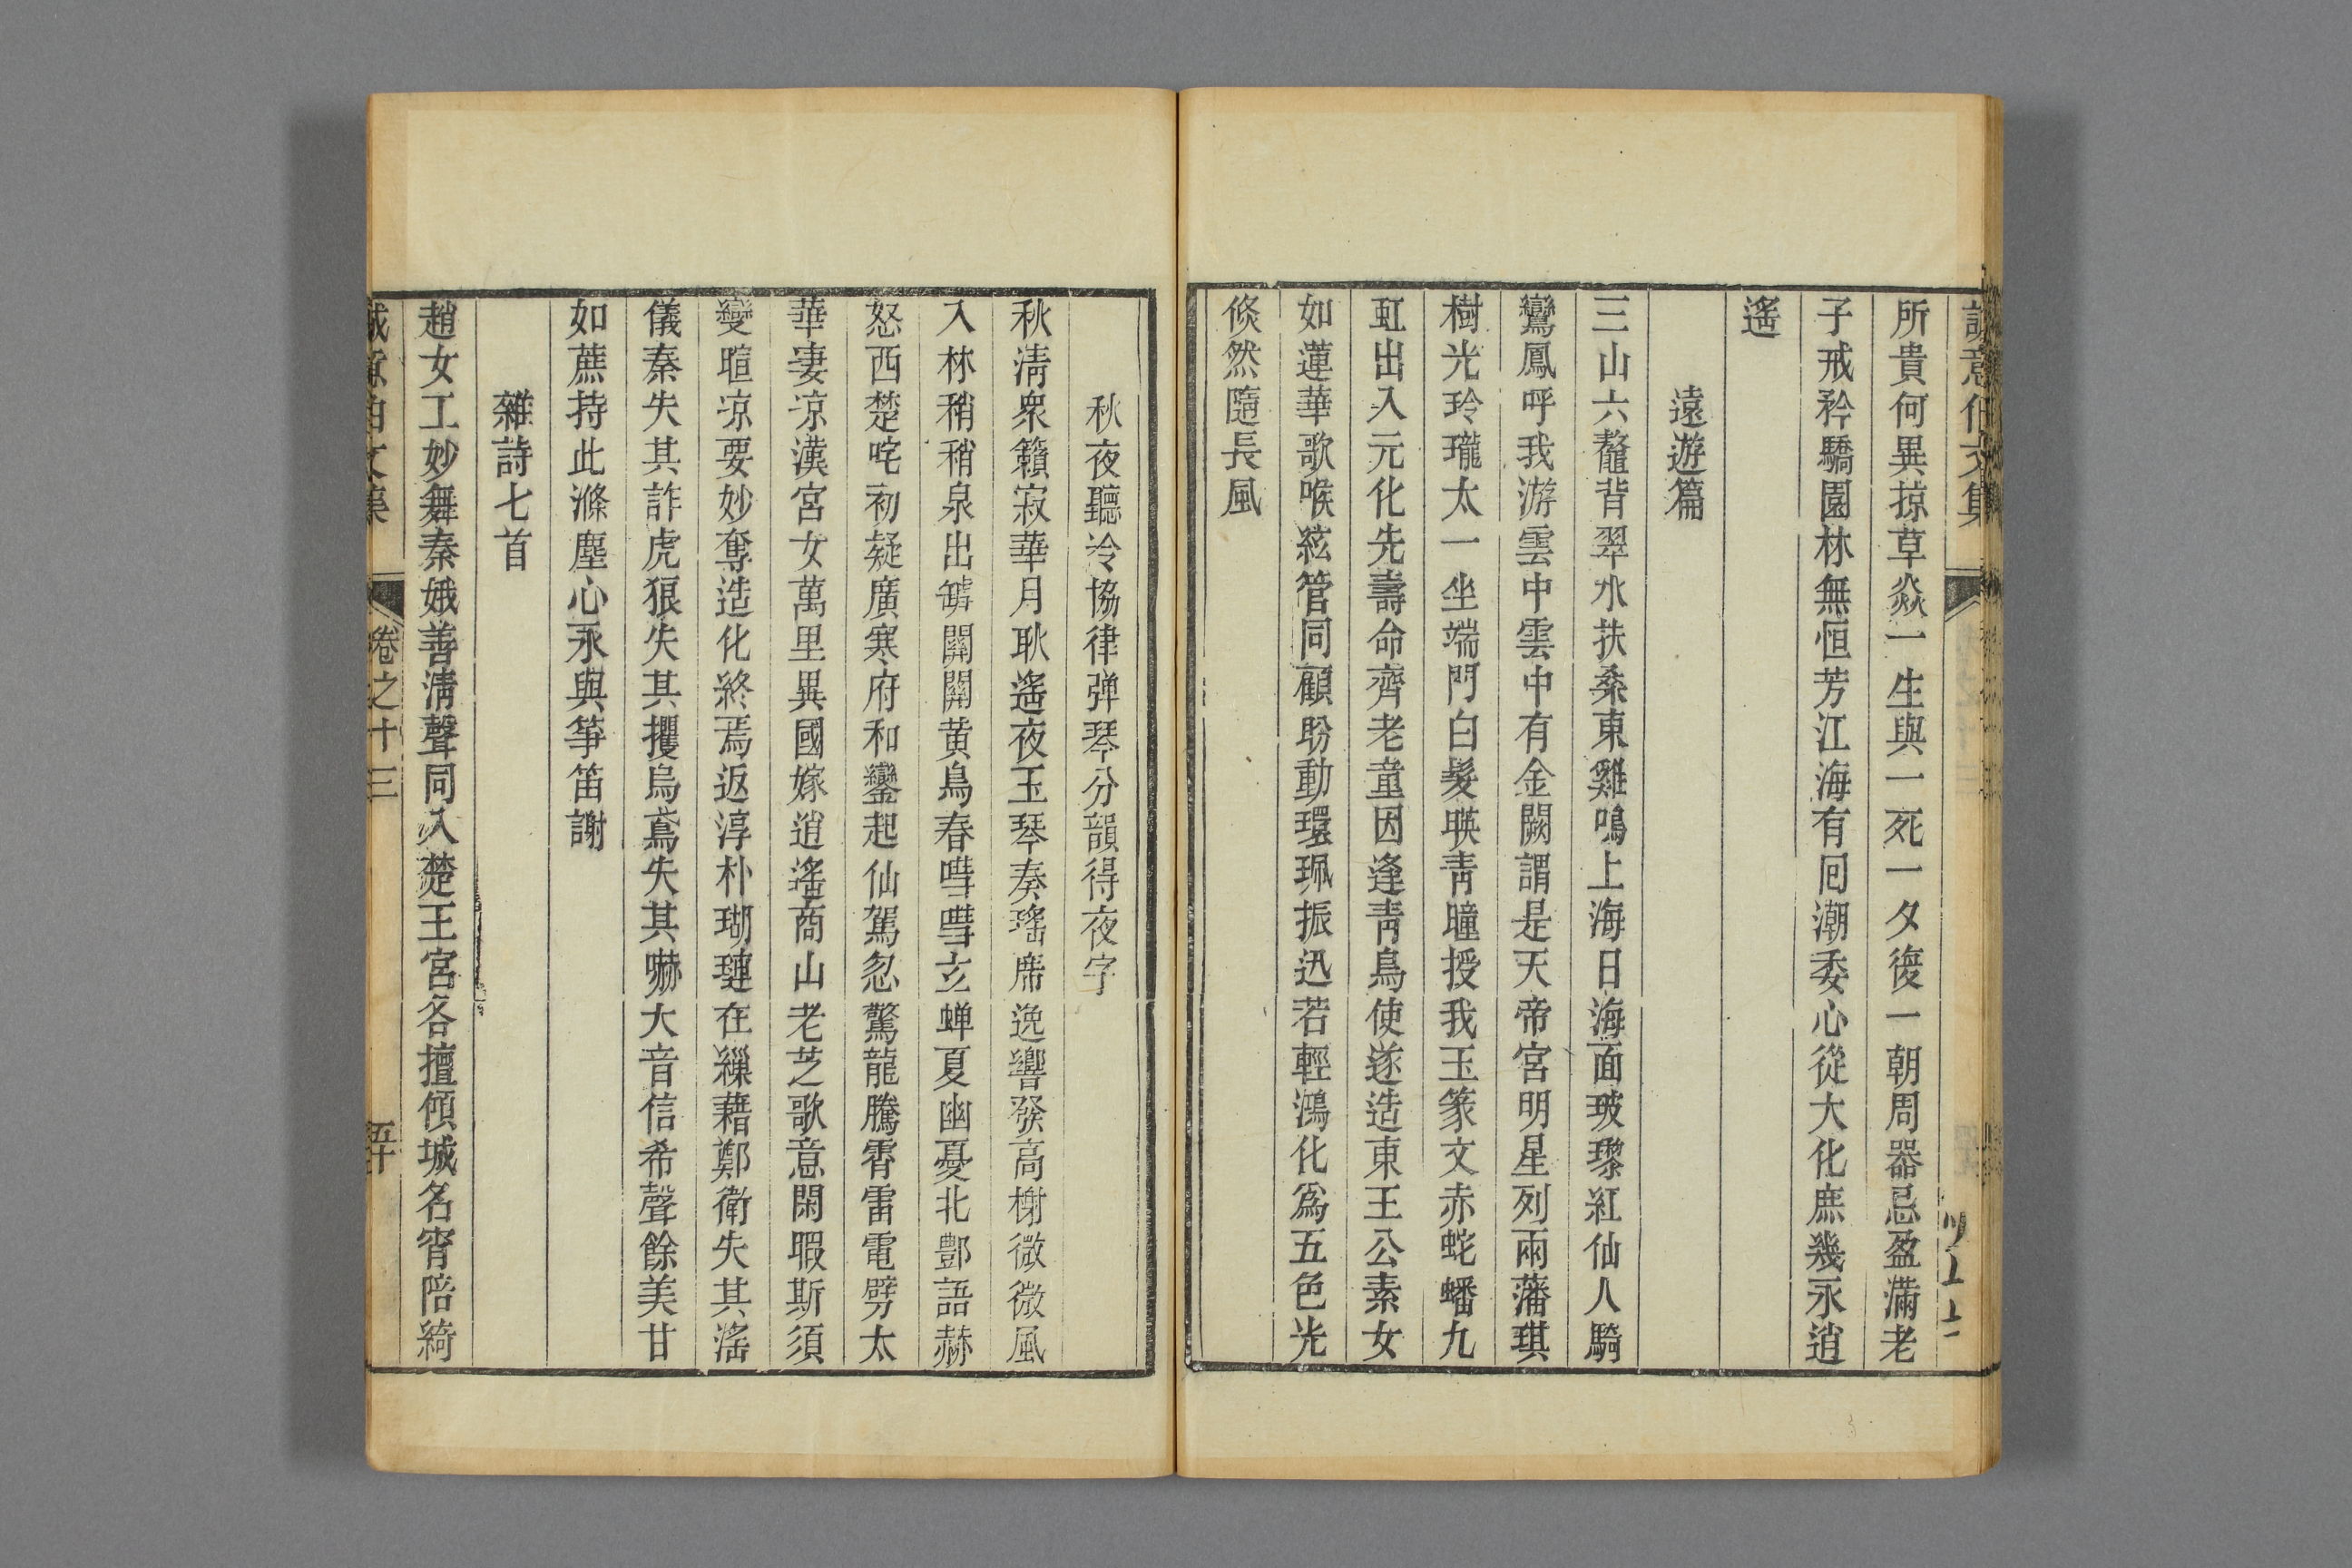 誠意伯文集
所貴何異掠草焱一生與一死一夕復一朝周器忌盈滿老
子戒矜驕園林無恒芳江海有囘潮委心從大化庶幾永逍
遙
遠遊篇
三山六鼇背翠水扶桑東雞鳴上海日海面玻瓈紅仙人騎
鸞鳳呼我游雲中雲中有金闕謂是天帝宮明星列兩藩琪
樹光玲瓏太一坐端門白髮暎靑瞳授我玉篆文赤蛇蟠九
虹出入元化先壽命齊老童因逢靑鳥使遂造東王公素女
如蓮華歌喉絃管同顧盼動環珮振迅若輕鴻化爲五色光
倏然隨長風
秋夜聽泠協律弾琴分韻得夜字
秋淸衆籟寂華月耿遙夜玉琴奏瑤席逸響發高榭微微風
入林稍稍泉出罅關關黄鳥春嘒嘒玄蝉夏幽憂北酆語赫
怒西楚咤初疑廣寒府和鑾起仙駕忽驚龍騰霄雷電劈太
華凄凉漢宮女萬里異國嫁逍遙商山老芝歌意閑暇斯須
變暄凉要妙奪造化終焉返淳朴瑚璉在繅藉鄭衛失其滛
儀秦失其詐虎狼失其攫烏鳶失其嚇大音信希聲餘美甘
如蔗持此滌塵心永與箏笛謝
雜詩七首
趙女工妙舞秦娥善淸聲同入楚王宮各擅傾城名宵陪綺
誠意伯文集
卷之十三
五十